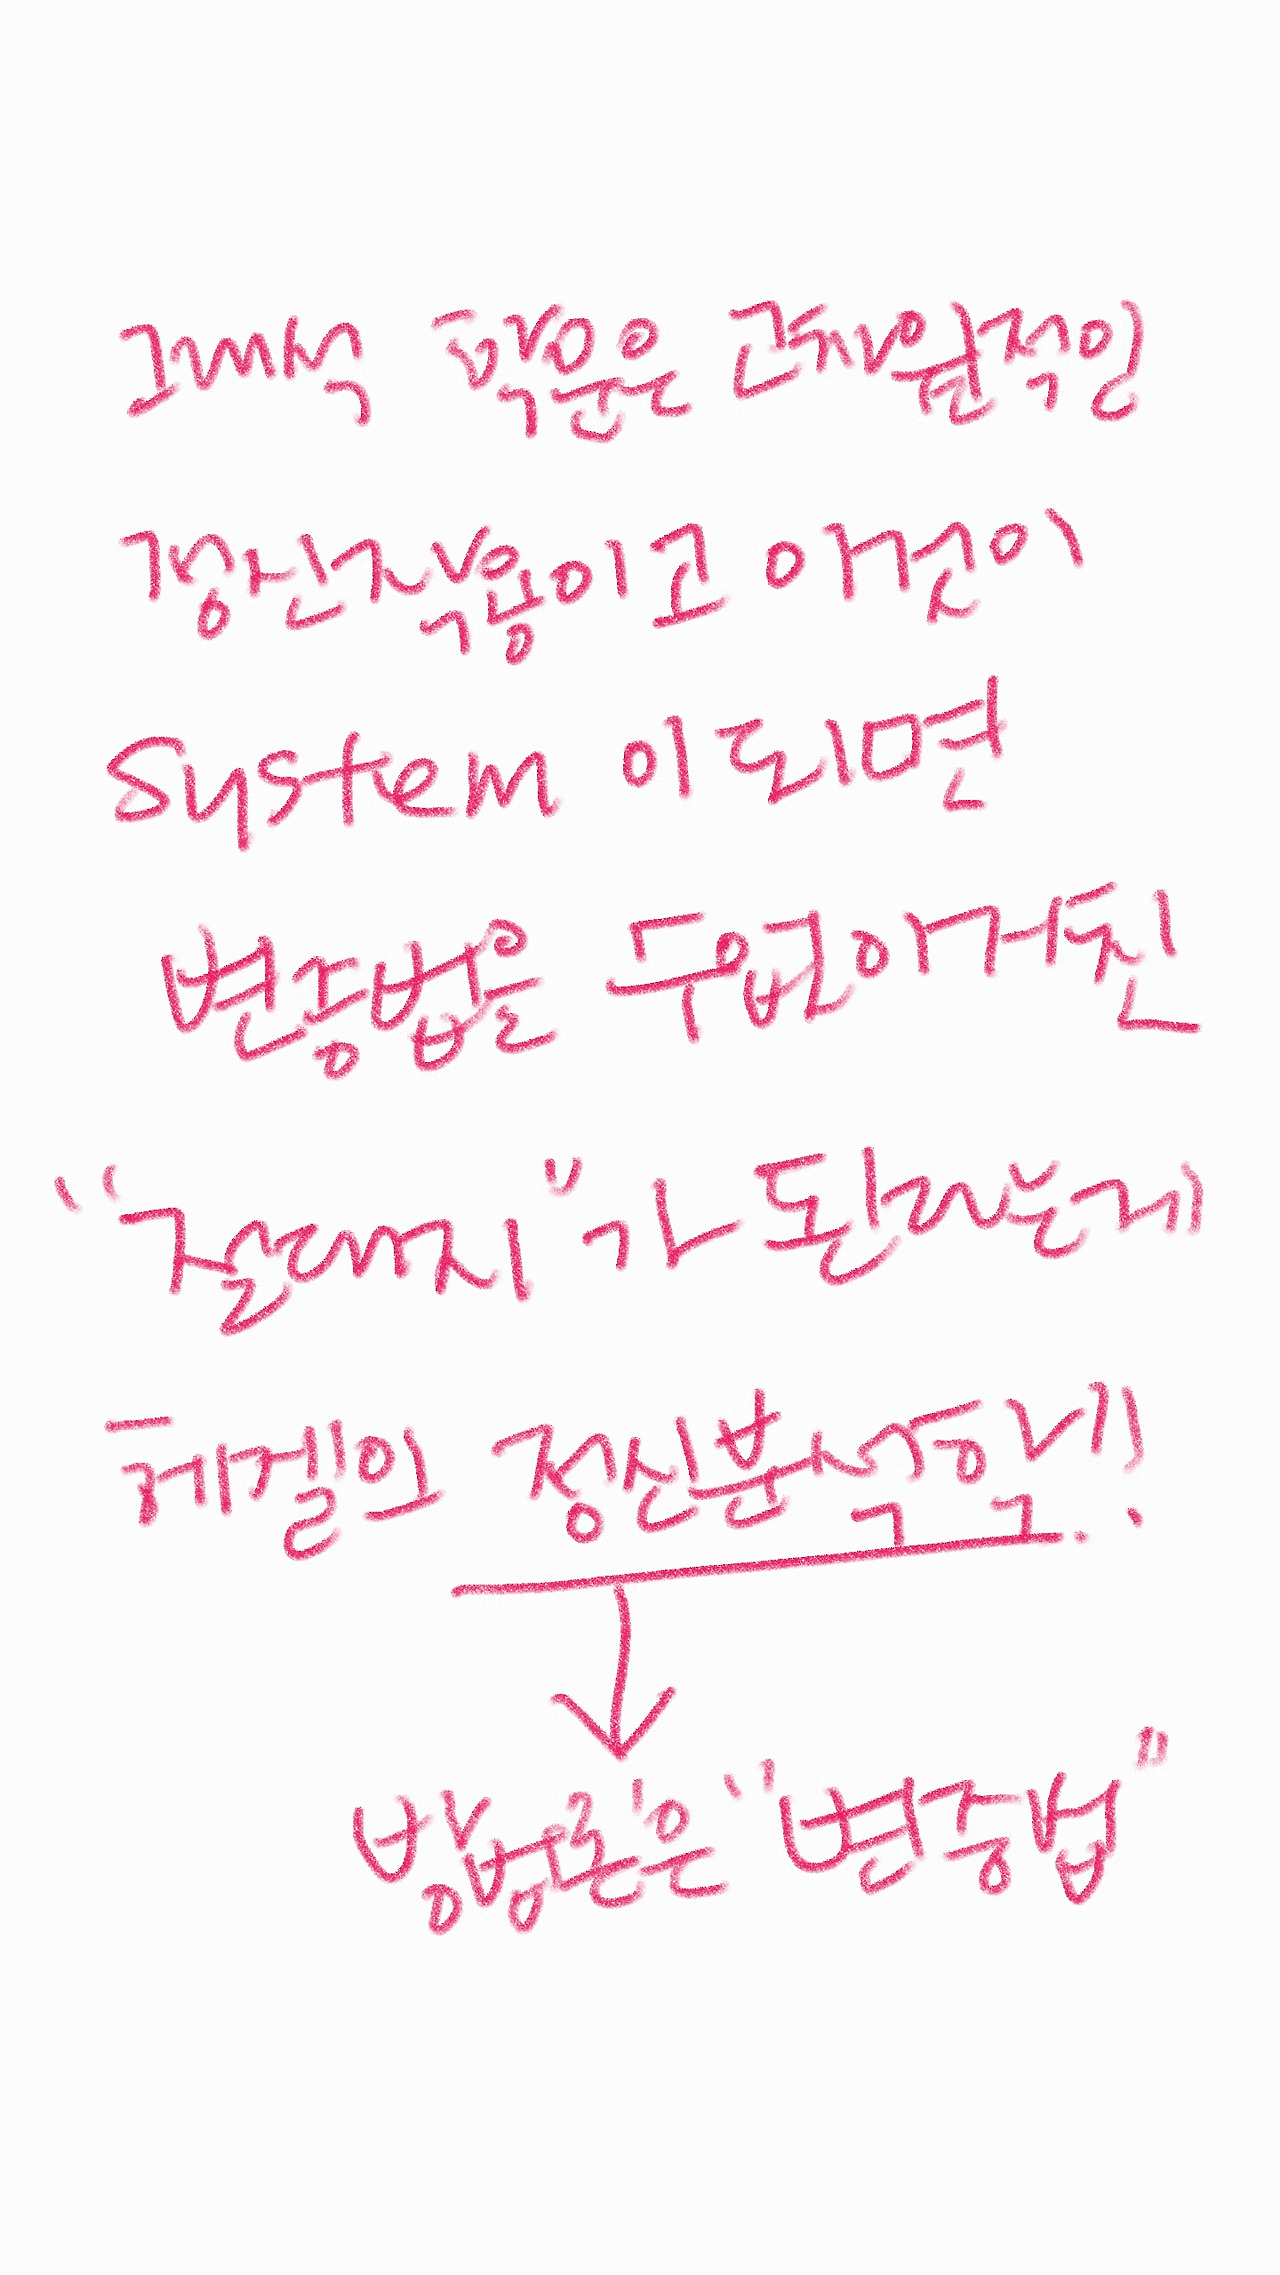 그래서 학문은 초월적인
정신작용이고 이것이
System 이 되면
변증법은 수없이 거친
"절대지"가 된다는게
헤겔의 정신분석학!!
방법론은 "변증법"